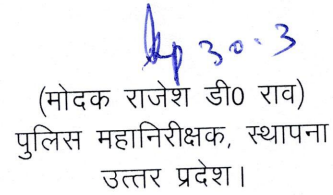 30.3
(मोदक राजेश डी0 राव)
पुलिस महानिरीक्षक, स्थापना
उत्तर प्रदेश।